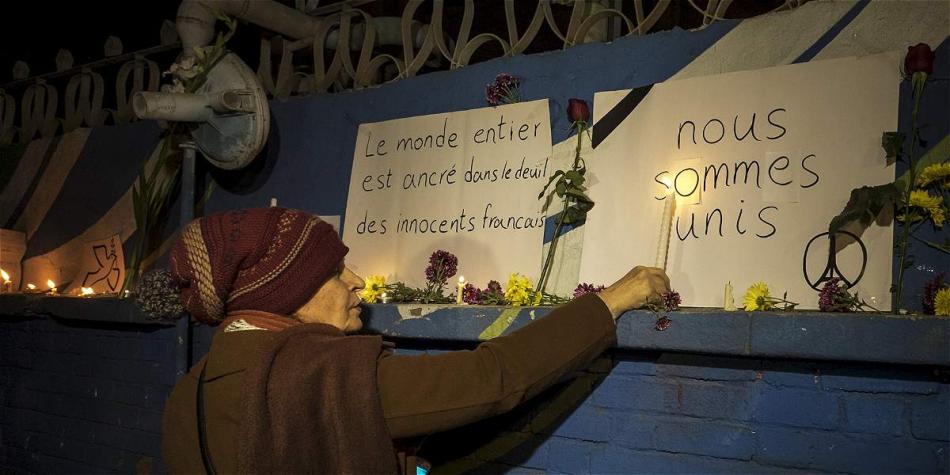 Le monde entier
est ancré dans le deuil
des innocents francais
nous
sommes
unis